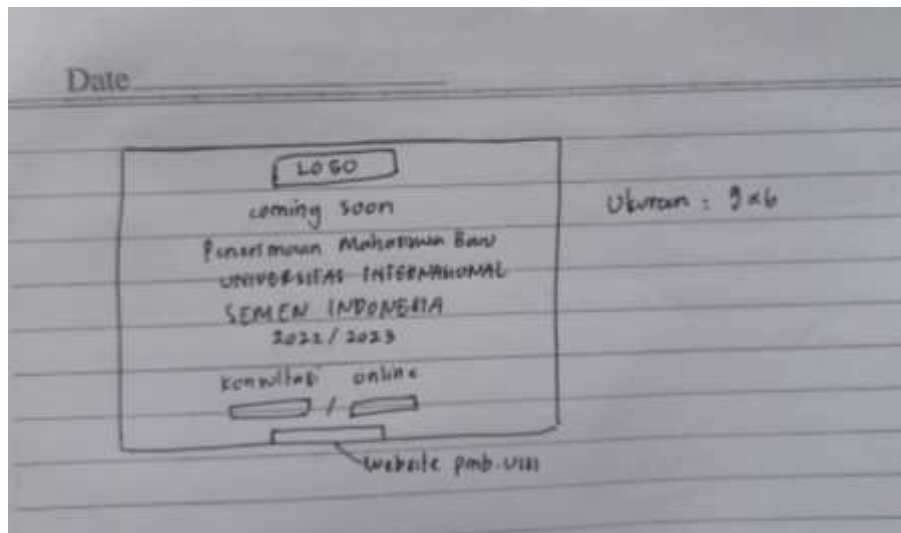 Date
LOGO
coming soon
Penerimaan Mahasiswa Baru
Ukuran : 9x6
UNIVERSITAS INTERNASIONAL
SEMEN INDONESIA
2022/2023
Konsultasi online
/
website pmb.uisi